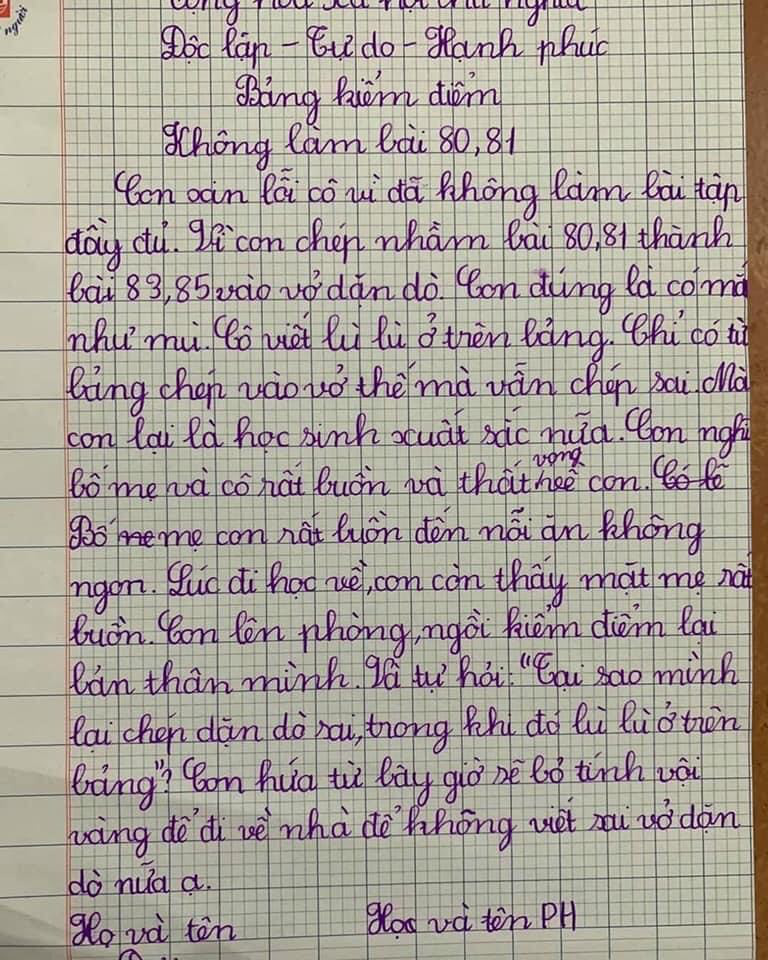 người
Cộng hòa xã hội chủ nghĩa
Độc lập - Tự do - Hạnh phúc
Bảng kiểm điểm
Không làm bài 80,81
Con xin lỗi cô vì đã không làm bài tập
đầy đủ. Vì con chép nhầm bài 80,81 thành
bài 83,85 vào vở dặn dò. Con đúng là có mắ
như mù. Cô viết lù lù ở trên bảng. Chỉ có từ
bảng chép vào vở thế mà vẫn chép sai. Mà
con lại là học sinh xuất sắc nữa. Con nghĩ
bố mẹ và cô rất buồn và thất vọng về con. Có lẽ
Bố me mẹ con rất buồn đến nỗi ăn không
ngon. Lúc đi học về, con còn thấy mặt mẹ rất
buồn. Con lên phòng, ngồi kiểm điểm lại
bản thân mình. Và tự hỏi: "Tại sao mình
lại chép dặn dò sai, trong khi đó lù lù ở trên
bảng"? Con hứa từ bây giờ sẽ bỏ tính vội
vàng để đi về nhà để không viết sai vở dặn
dò nữa ạ.
Họ và tên Họo và tên PH